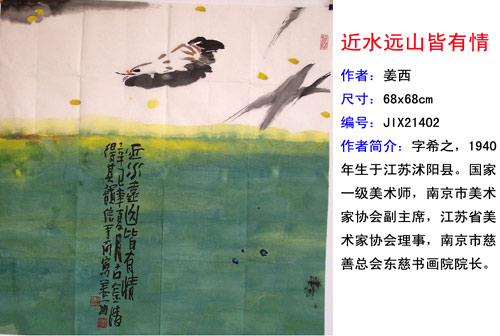 近水远山皆有情
作者：姜西
尺寸：68x68cm
编号：JIX21402
作者简介：字希之，1940
年生于江苏沭阳县。国家
一级美术师，南京市美术
家协会副主席，江苏省美
术家协会理事，南京市慈
善总会东慈书画院院长。
近水遠山皆有情